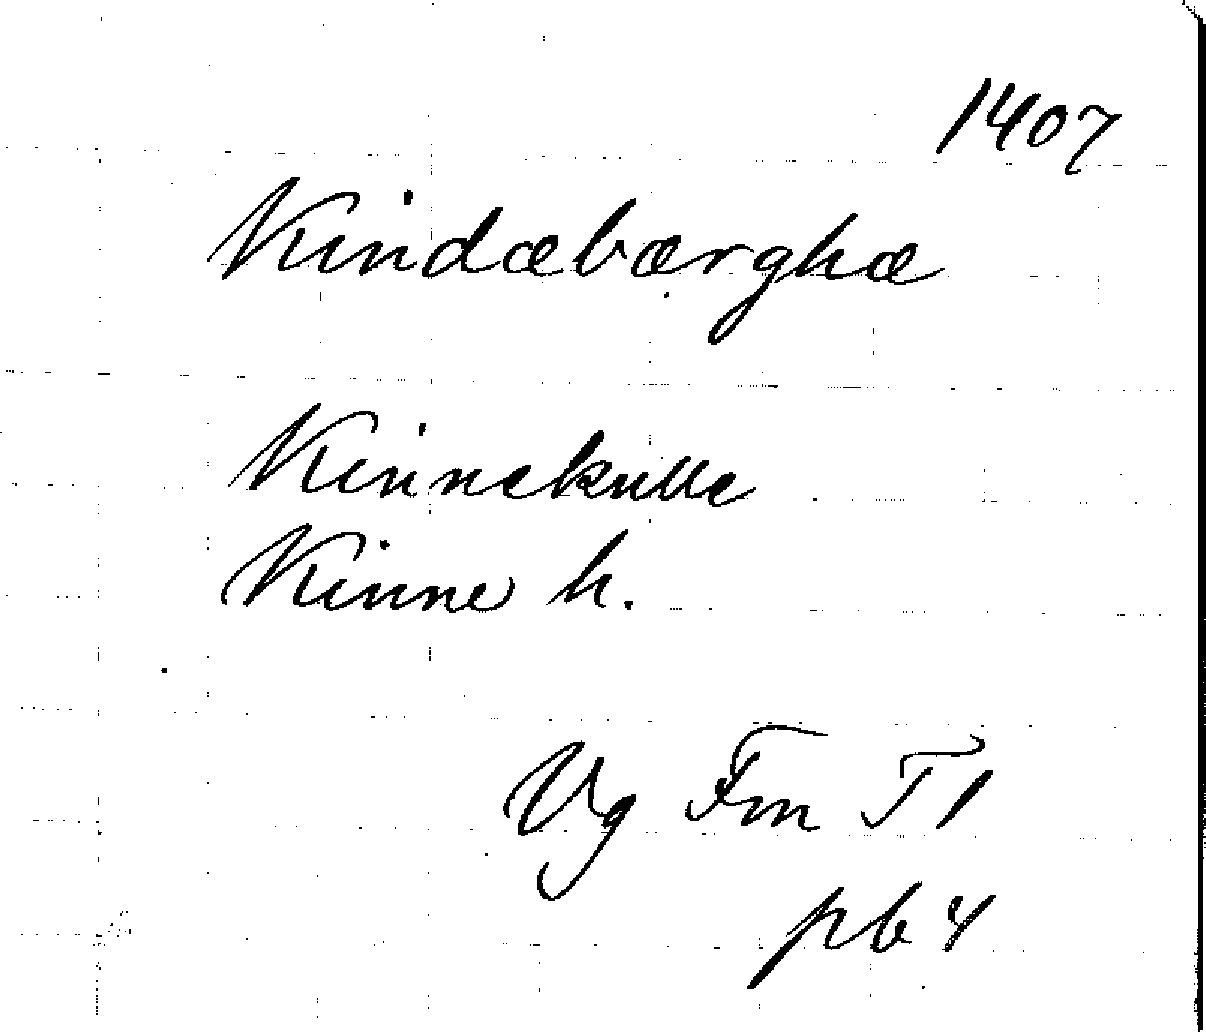 1407
Kindæbærghæ
Kinnekulle
Kinne h.
Vg Fm T 1
p 64